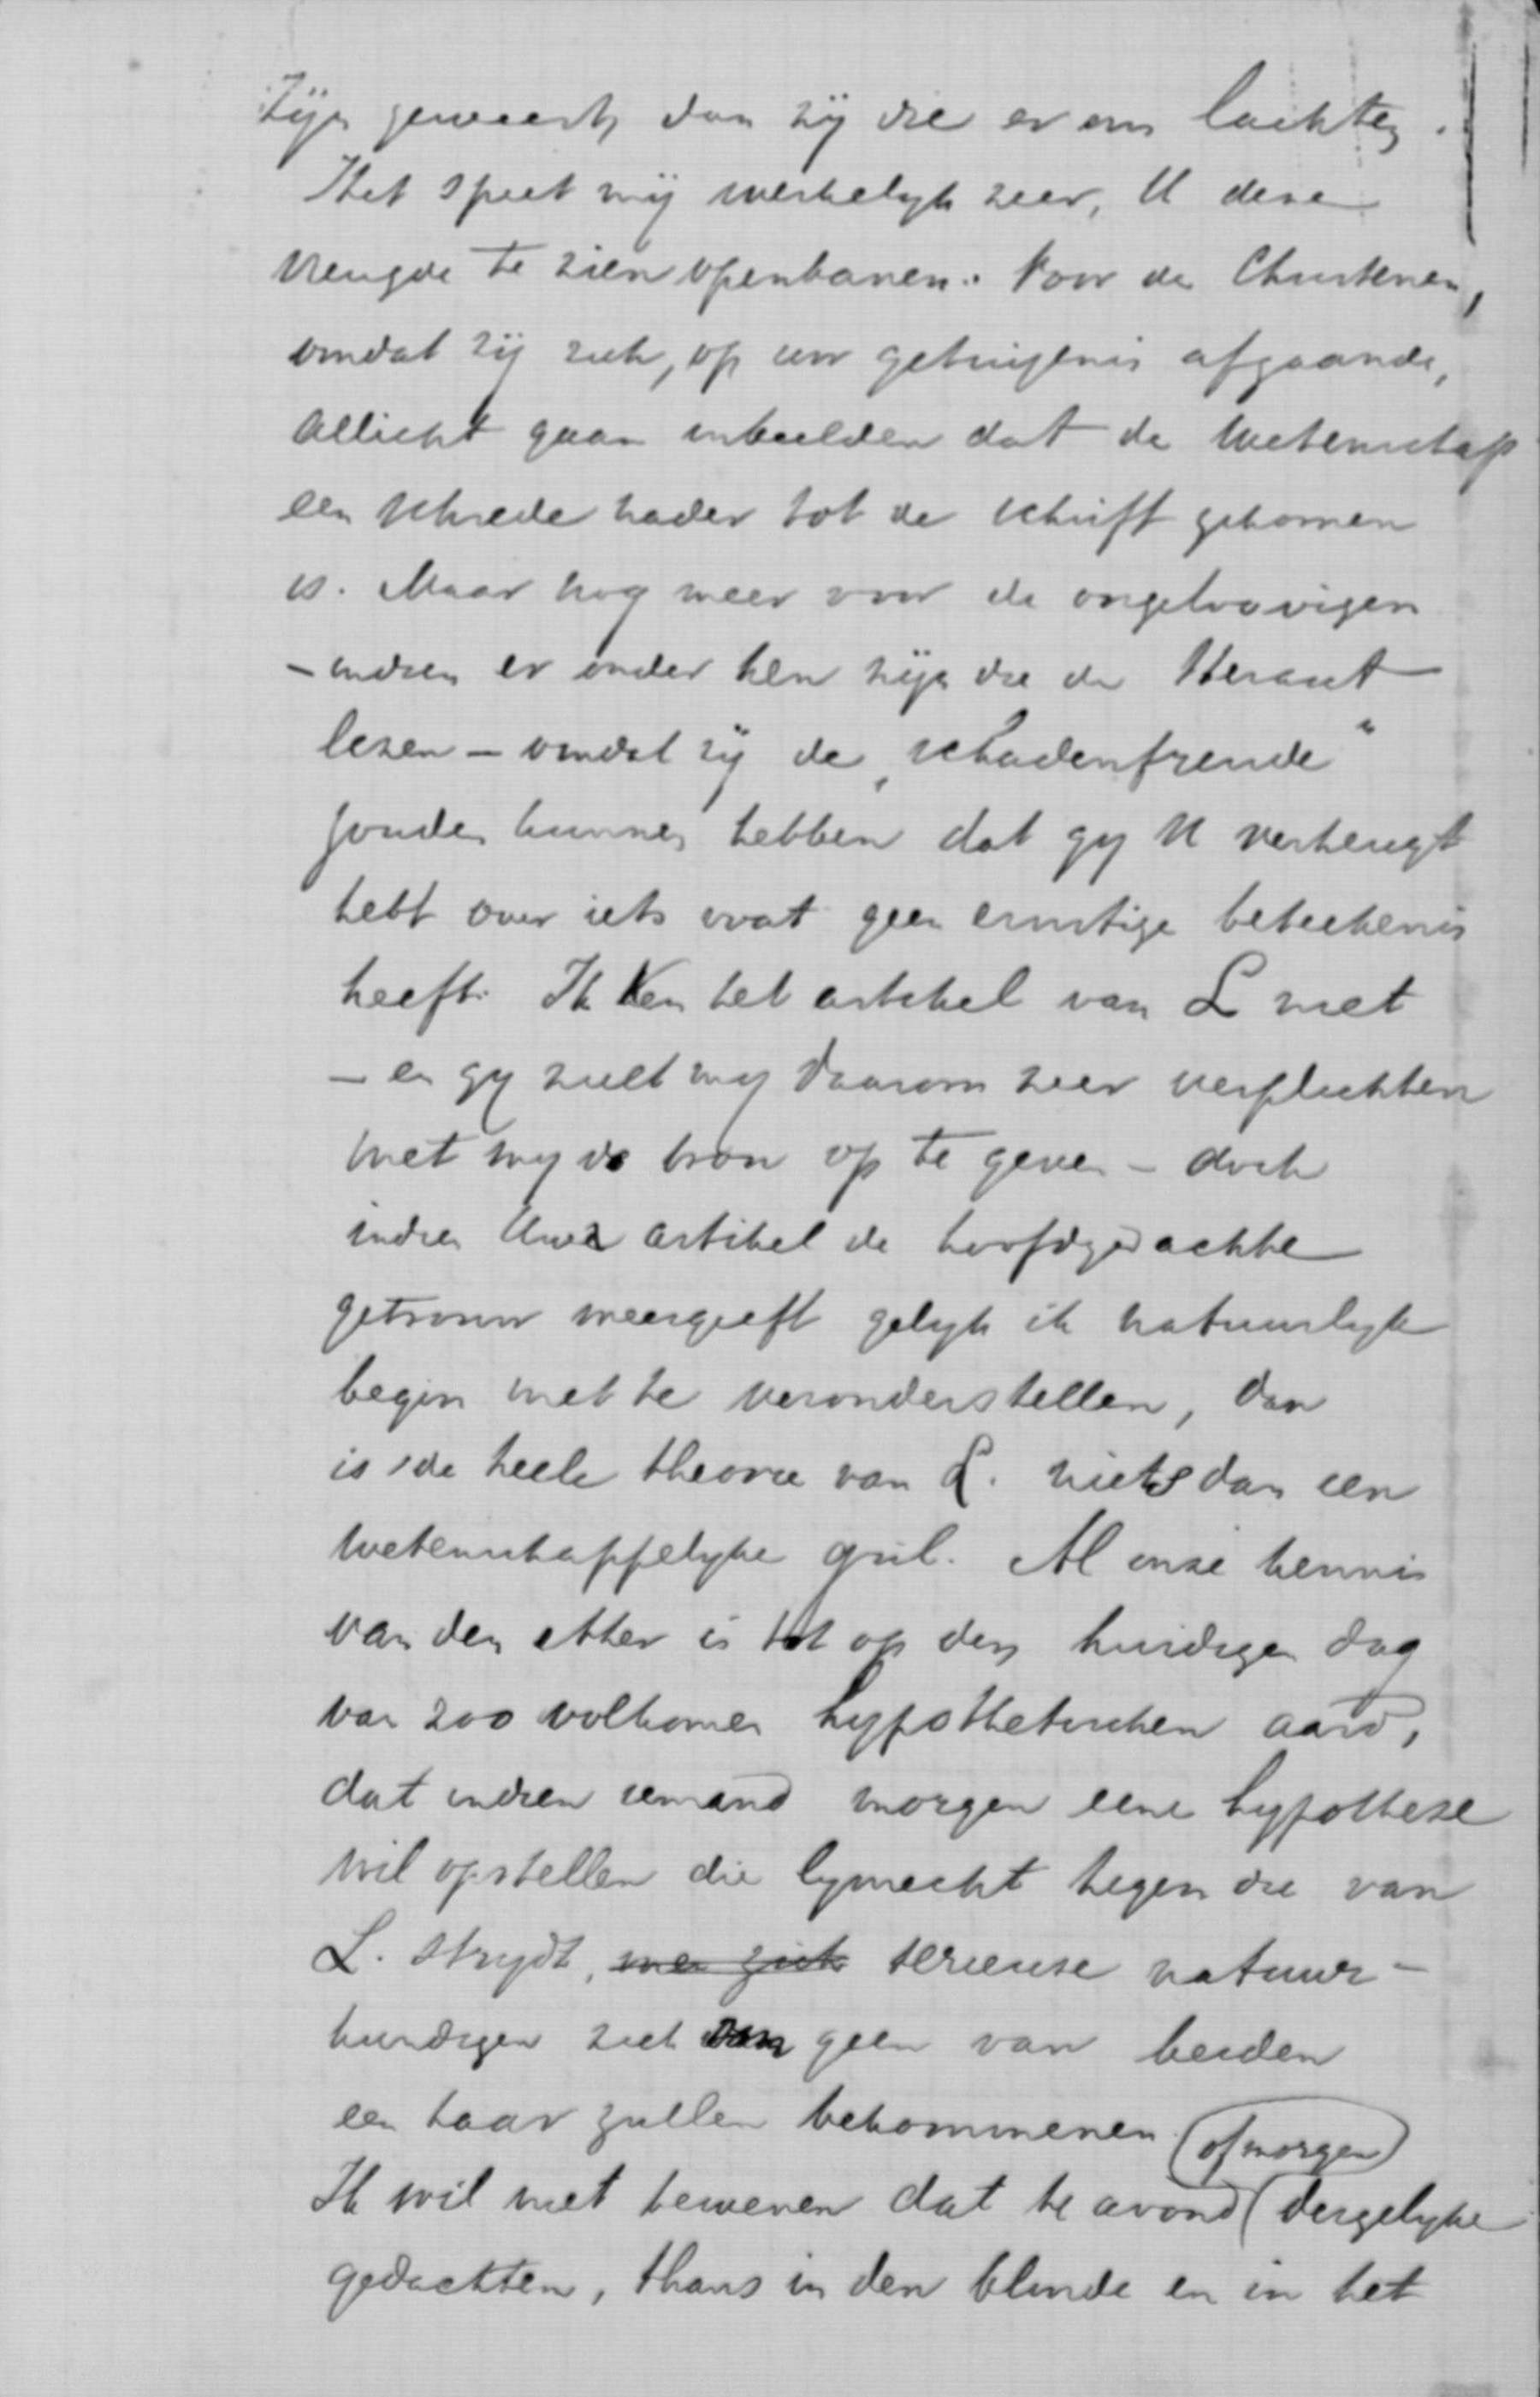 zijn geweest, dan zij die er om lachten.
Het spiet mij werkelijk zeer, U deze
vreugde te zien openbaren. Voor de Christenen,
omdat zij zich, op uw getuigenis afgaande,
allicht gaan inbeelden dat de wetenschap
een schrede nader tot de schrift gekomen
is. Maar nog meer voor de ongeloovigen
– indien er onder hen zijn die de Heraut
lezen – omdat zij de „schadenfreude"
zouden kunnen hebben dat gy U verheugt
hebt over iets wat geen ernstige beteekenis
heeft. Ik Ken het artikel van L niet
– en gy zult my daarom zeer verplichten
met my de bron op te geven – doch
indien Uwe artikel de hoofdgedachte
getrouw weergeeft gelyk ik natuurlyk
begin met te veronderstellen, dan
is de heele theorie van L. niets dan een
wetenschappelyke gril. Al onze kennis
van den ether is tot op den huidigen dag
van zoo volkomen hypothetischen aard,
dat indien iemand morgen eene hypothese
wil opstellen die lynrecht tegen die van
L. strydt, men zich serieuse natuur-
kundigen zich om geen van beiden
een haar zullen bekommeren
of morgen
Ik wil niet beweren dat te avond dergelyke
gedachten, thans in den blinde en in het